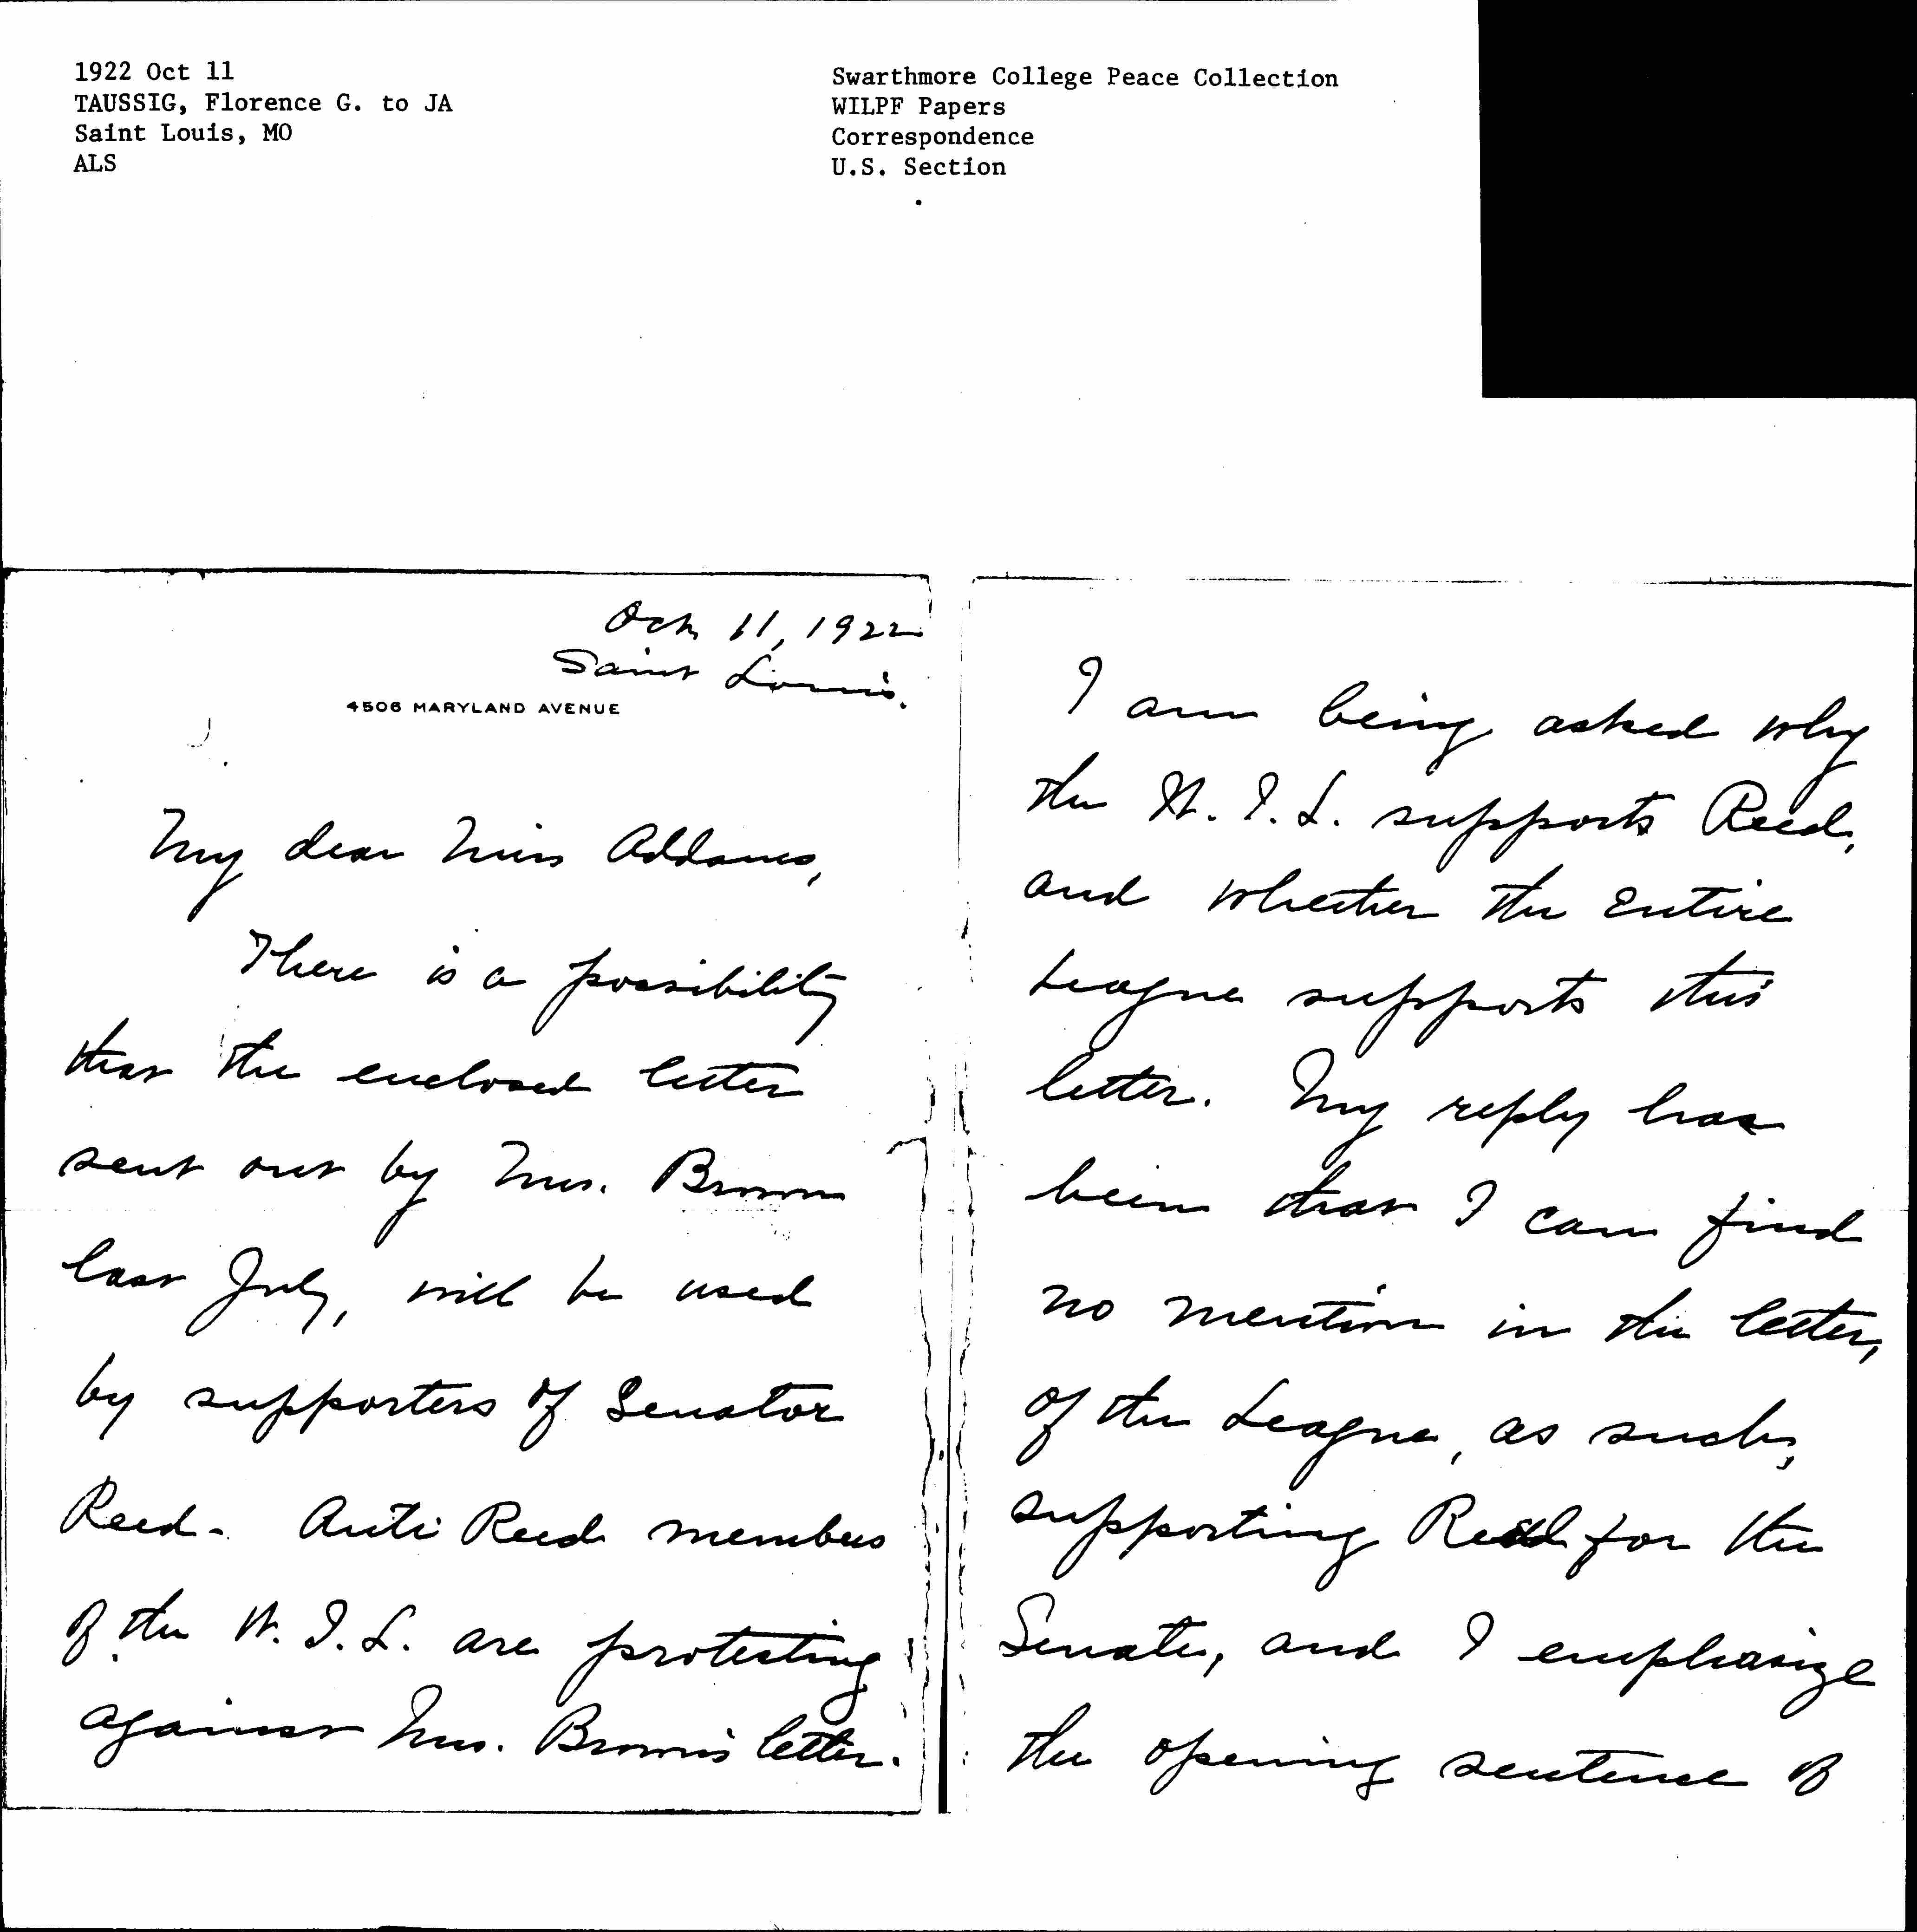 1922 Oct 11
TAUSSIG, Florence G. to JA
Saint Louis, MO
ALS
Swarthmore College Peace Collection
WILPF Papers
Correspondence
U.S. Section
Oct 11, 1922
Saint Louis.
4506 MARYLAND AVENUE
My dear Miss Addams,
There is a possibility
that the enclosed letter
sent out by Mrs. Brown
last July, will be used
by supporters of Senator
Reed - Anti Reed members
of the W. I. L. are protesting
against Mrs. Brown's letter.
I am being asked why
the W. I. L. supports Reed,
and whether the entire
League supports this
letter. My reply has
been that I can find
no mention in the letter,
of the League, as such,
supporting Reed for the
Senate, and I emphasize
the opening sentence of